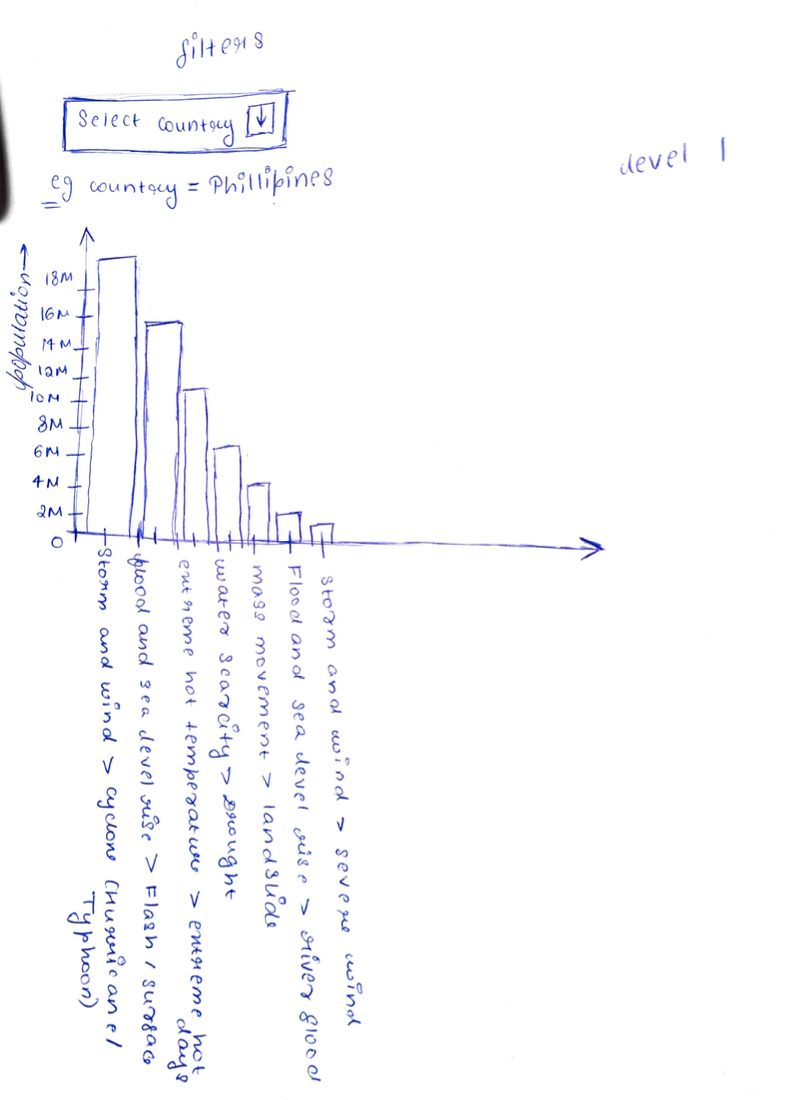 filters
Select country ↓
eg country = Phillipines
level 1
population →
18M
16M
14M
12M
10M
8M
6M
4M
2M
0
Storm and wind > cyclone (Hurricane/
Typhoon)
flood and sea level rise > Flash / surface
extreme hot temperature > extreme hot
days
water scarcity > Drought
mass movement > landslide
Flood and sea level rise > river flood
Storm and wind > severe wind